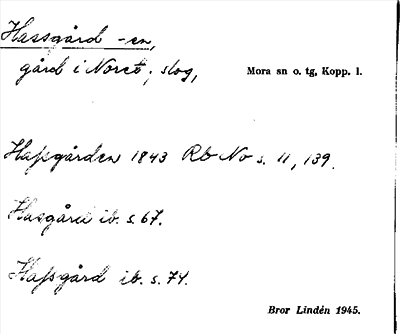 Hassgård -en,
gård i Noret; slog, Mora sn o. tg, Kopp. l.
Hassgården 1843 Rb No s. 11, 139.
Hasgård ib. s. 67.
Hassgård ib. s. 74.
Bror Lindén 1945.